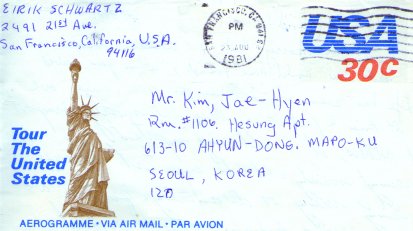 EIRIK SCHWARTZ
2491 21st Ave.
San Francisco, California, U.S.A.
94116
SAN FRANCISCO, CA
PM
AUG
1981
USA
30c
Mr. Kim, Jae-Hyen
Rm. #1106. Hesung Apt.
613-10 AHYUN-DONG. MAPO-KU
SEOUL, KOREA
120
Tour
The
United
States
AEROGRAMME • VIA AIR MAIL • PAR AVION